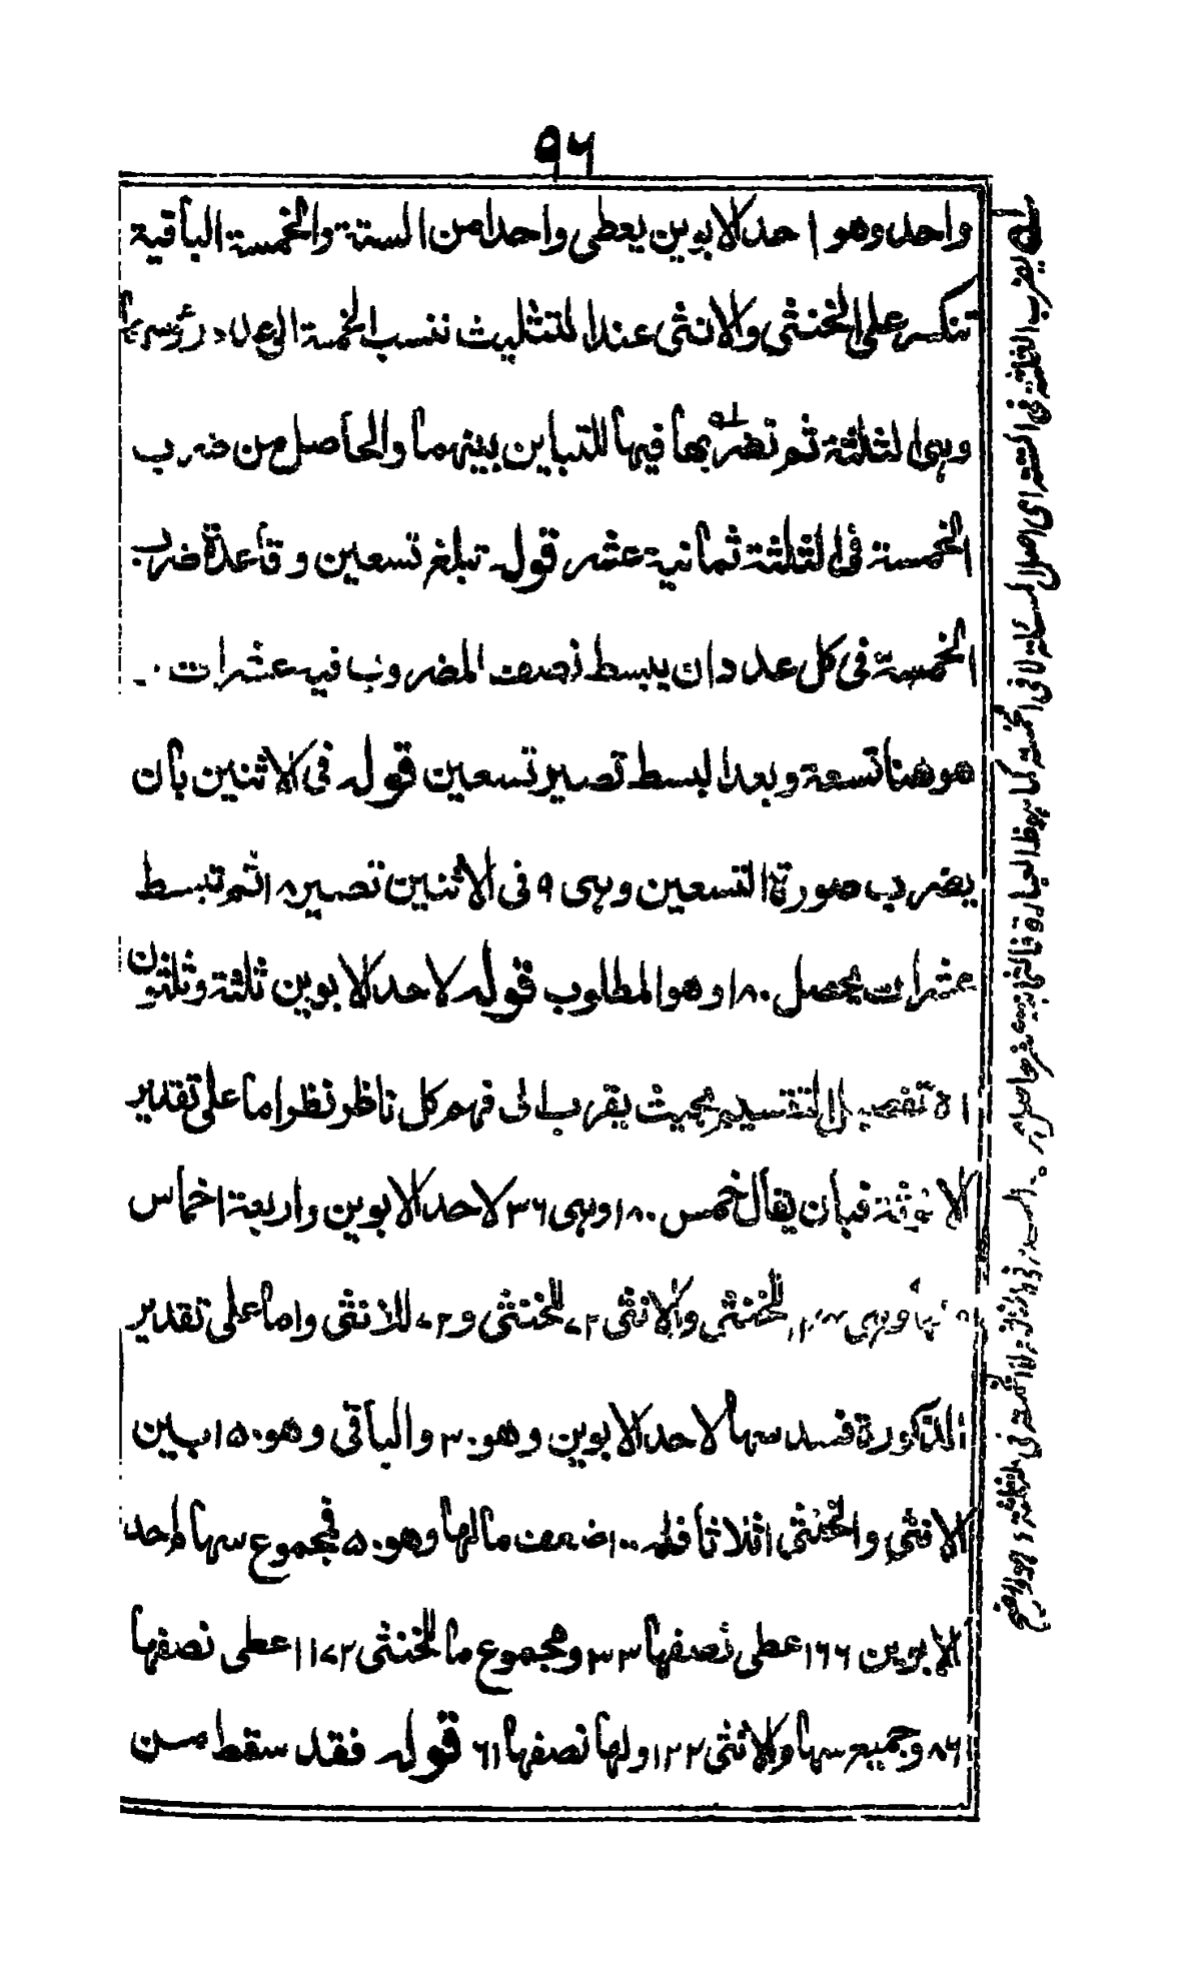 ٩٦
واحد وهو احد الابوين يعطى واحدا من الستة والخمسة الباقية
تنكسر على الخنثى والانثى عند التثليث ننسب الخمسة الى عدد رؤسهما
وهى الثلثة ثم تضربها فيها للتباين بينهما والحاصل من ضرب
الخمسة فى الثلثة ثمانية عشر قوله تبلغ تسعين وقاعدة ضرب
الخمسة فى كل عدد ان يبسط نصف المضروب فيه عشرات
هو هنا تسعة وبعد البسط تصير تسعين قوله فى الاثنين بان
يضرب صورة التسعين وهى ٩ فى الاثنين تصير ١٨ ثم تبسط
عشرات يحصل ١٨٠ وهو المطلوب قوله لاحد الابوين ثلثة وثلثون
اه تفصيل التقسيم بحيث يقرب الى فهم كل ناظر نظر اما على تقدير
الانوثة فبان يقال خمس ١٨٠ وهى ٣٦ لاحد الابوين واربعة اخماس
وهى للخنثى والانثى ٧٢ للخنثى و ٧٢ للانثى واما على تقدير
الذكورة فسدسها لاحد الابوين وهو ٣٠ والباقى وهو ١٥٠ بين
الانثى والخنثى اثلاثا فله ١٠٠ ضعف ما لها وهو ٥٠ فمجموع سهام احد
الابوين ٦٦ اعطى نصفها ٣٣ ومجموع ما للخنثى ١٧٢ اعطى نصفها
٨٦ وجميع سهام الانثى ١٢٢ ولها نصفها ٦١ قوله فقد سقط من
له يضرب الثلثة فى الستة اى اصل المسئلة لا فى الخمسة كما يوهم العبارة